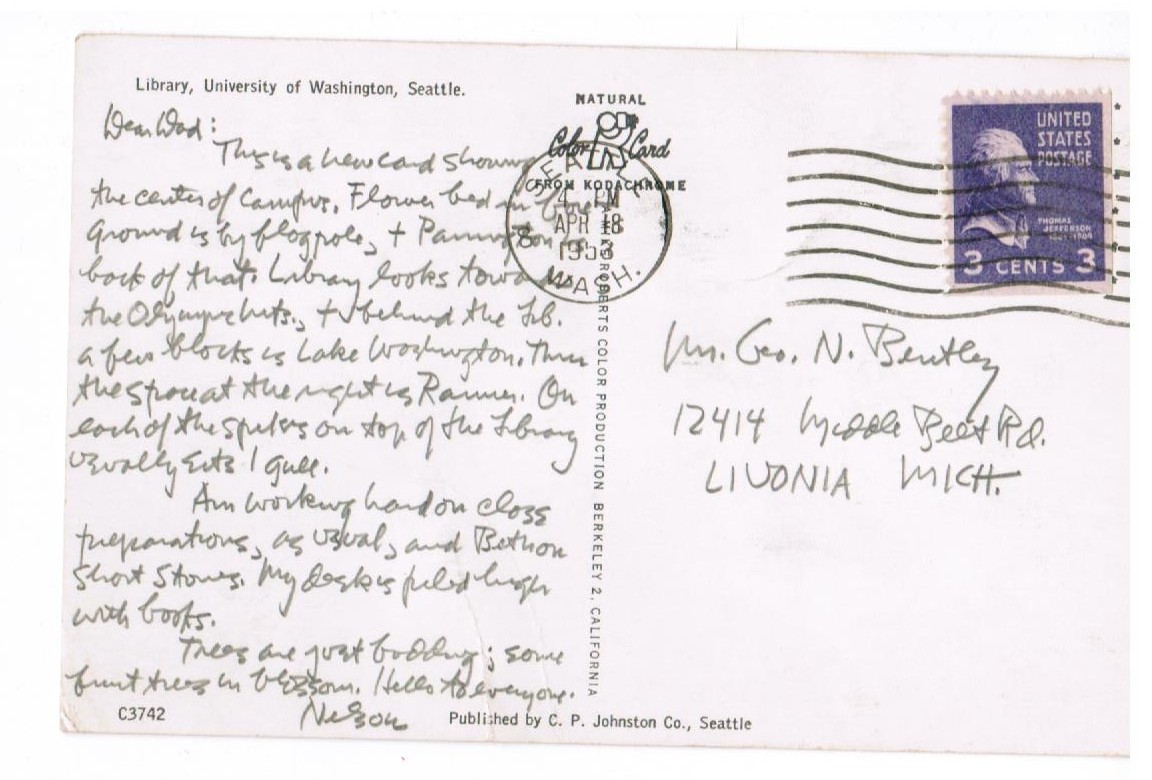 Library, University of Washington, Seattle.
Dear Dad:
This is a new card showing
the center of Campus. Flower bed in fore-
Ground is by flagpole, + Parrington
back of that. Library looks toward
the Olympic Mts., + behind the Lib.
a few blocks is Lake Washington. Thru
the space at the right is Rainier. On
each of the spikes on top of the Library
usually sits 1 gull.
Am working hard on class
preparations, as usual, and Beth on
short stories. My desk is piled high
with books.
Trees are just budding; some
fruit trees in blossom. Hello to everyone.
Nelson
C3742
Published by C. P. Johnston Co., Seattle
NATURAL
Color Card
FROM KODACHROME
ROBERTS COLOR PRODUCTION BERKELEY 2, CALIFORNIA
SEATTLE
8
4 PM
APR 18
1953
WASH.
UNITED
STATES
POSTAGE
THOMAS
JEFFERSON
3 CENTS 3
Mr. Geo. N. Bentley
12414 Middle Belt Rd.
LIVONIA MICH.